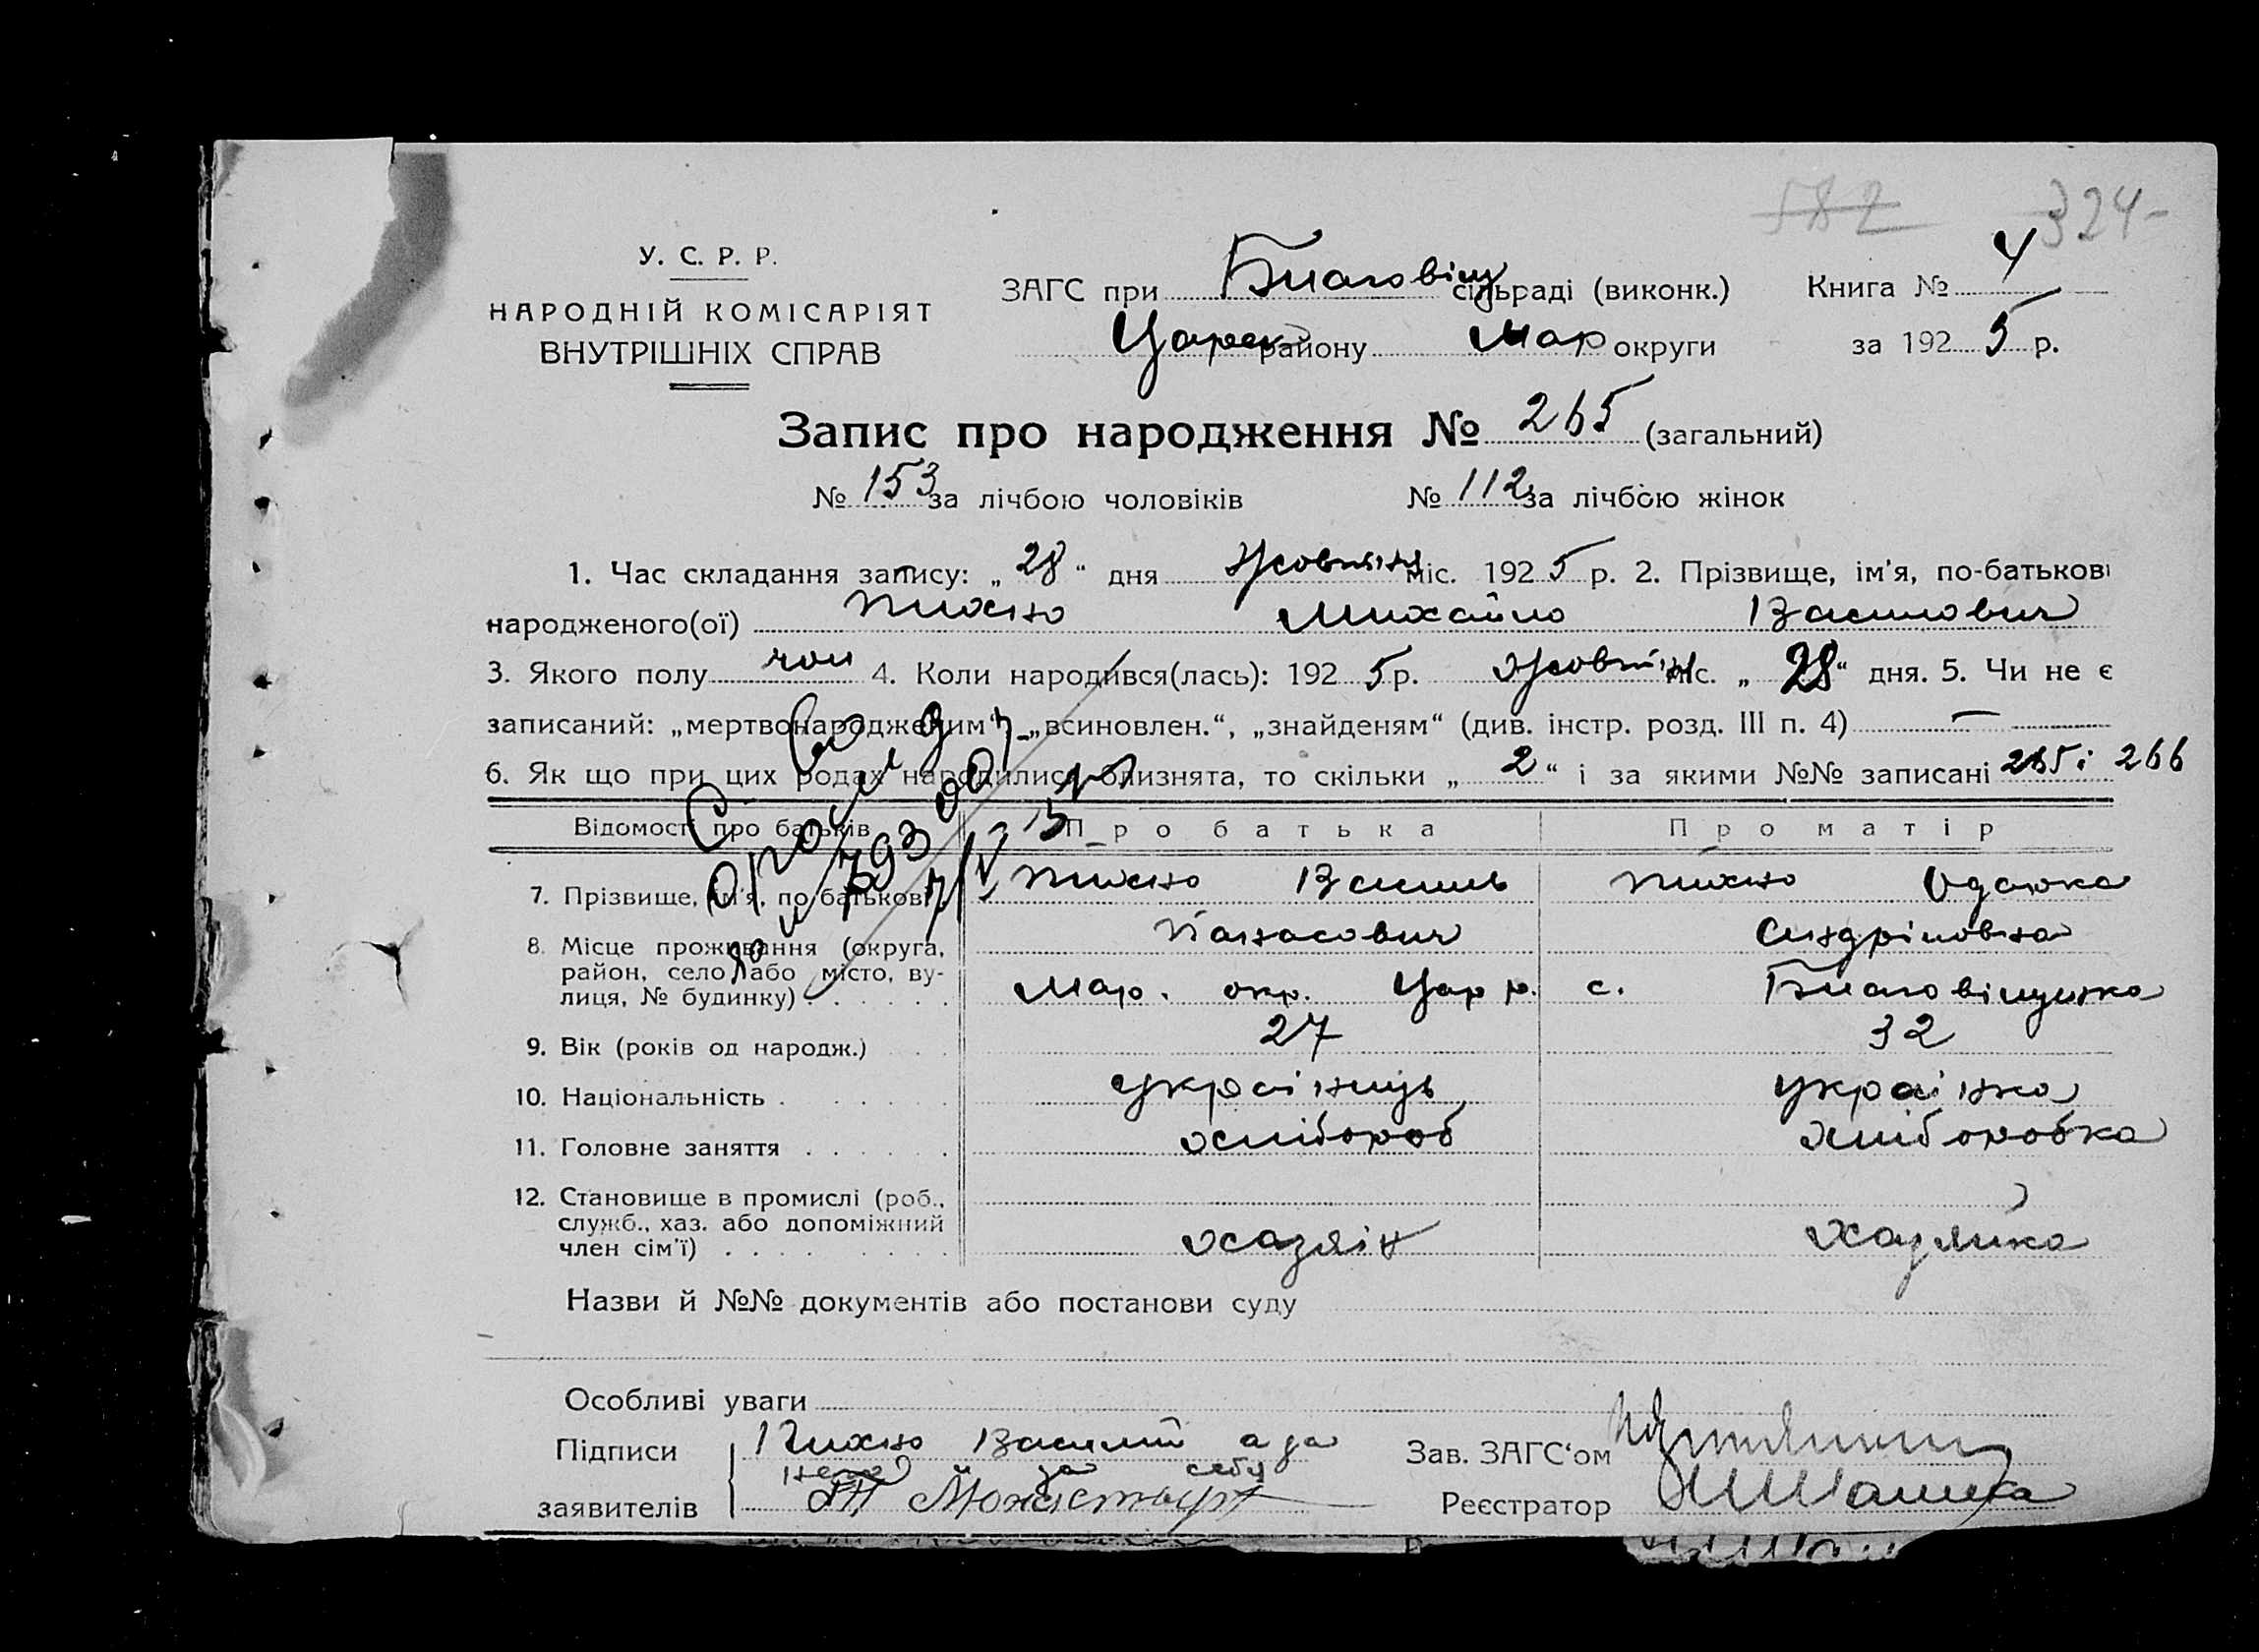 582 324
У. С. Р. Р.
НАРОДНІЙ КОМІСАРІЯТ
ВНУТРІШНІХ СПРАВ
ЗАГС при Благовіщ сільраді (виконк.) Книга № 4
Царек району Мар округи за 1925 р.
Запис про народження № 265 (загальний)
№ 153 за лічбою чоловіків № 112 за лічбою жінок
1. Час складання запису: „28“ дня Жовтня міс. 1925 р. 2. Прізвище, ім’я, по-батькові
народженого(ої) Пихно Михайло Василович
3. Якого полу чол 4. Коли народився(лась): 1925 р. Жовтня міс. „28“ дня. 5. Чи не є
записаний: „мертвонародженим“, „всиновлен.“, „знайденям“ (див. інстр. розд. III п. 4) —
6. Як що при цих родах народились близнята, то скільки „2“ і за якими №№ записані 265 і 266
Відомості про батьків Про батька Про матір
7. Прізвище, ім’я, по-батькові Пихно Василь Пихно Одарка
Панасович
8. Місце проживання (округа, район, село або місто, вулиця, № будинку) Мар. окр. Цар р. с. Благовіщенка
9. Вік (років од народж.) 27 32
10. Національність українець українка
11. Головне заняття хлібороб хліборобка
12. Становище в промислі (роб., служб., хаз. або допоміжний член сім’ї) хазяїн хазяйка
Назви й №№ документів або постанови суду
Особливі уваги
Підписи Пихно Василий а за Зав. ЗАГС‘ом
него и за себя
заявителів Реєстратор